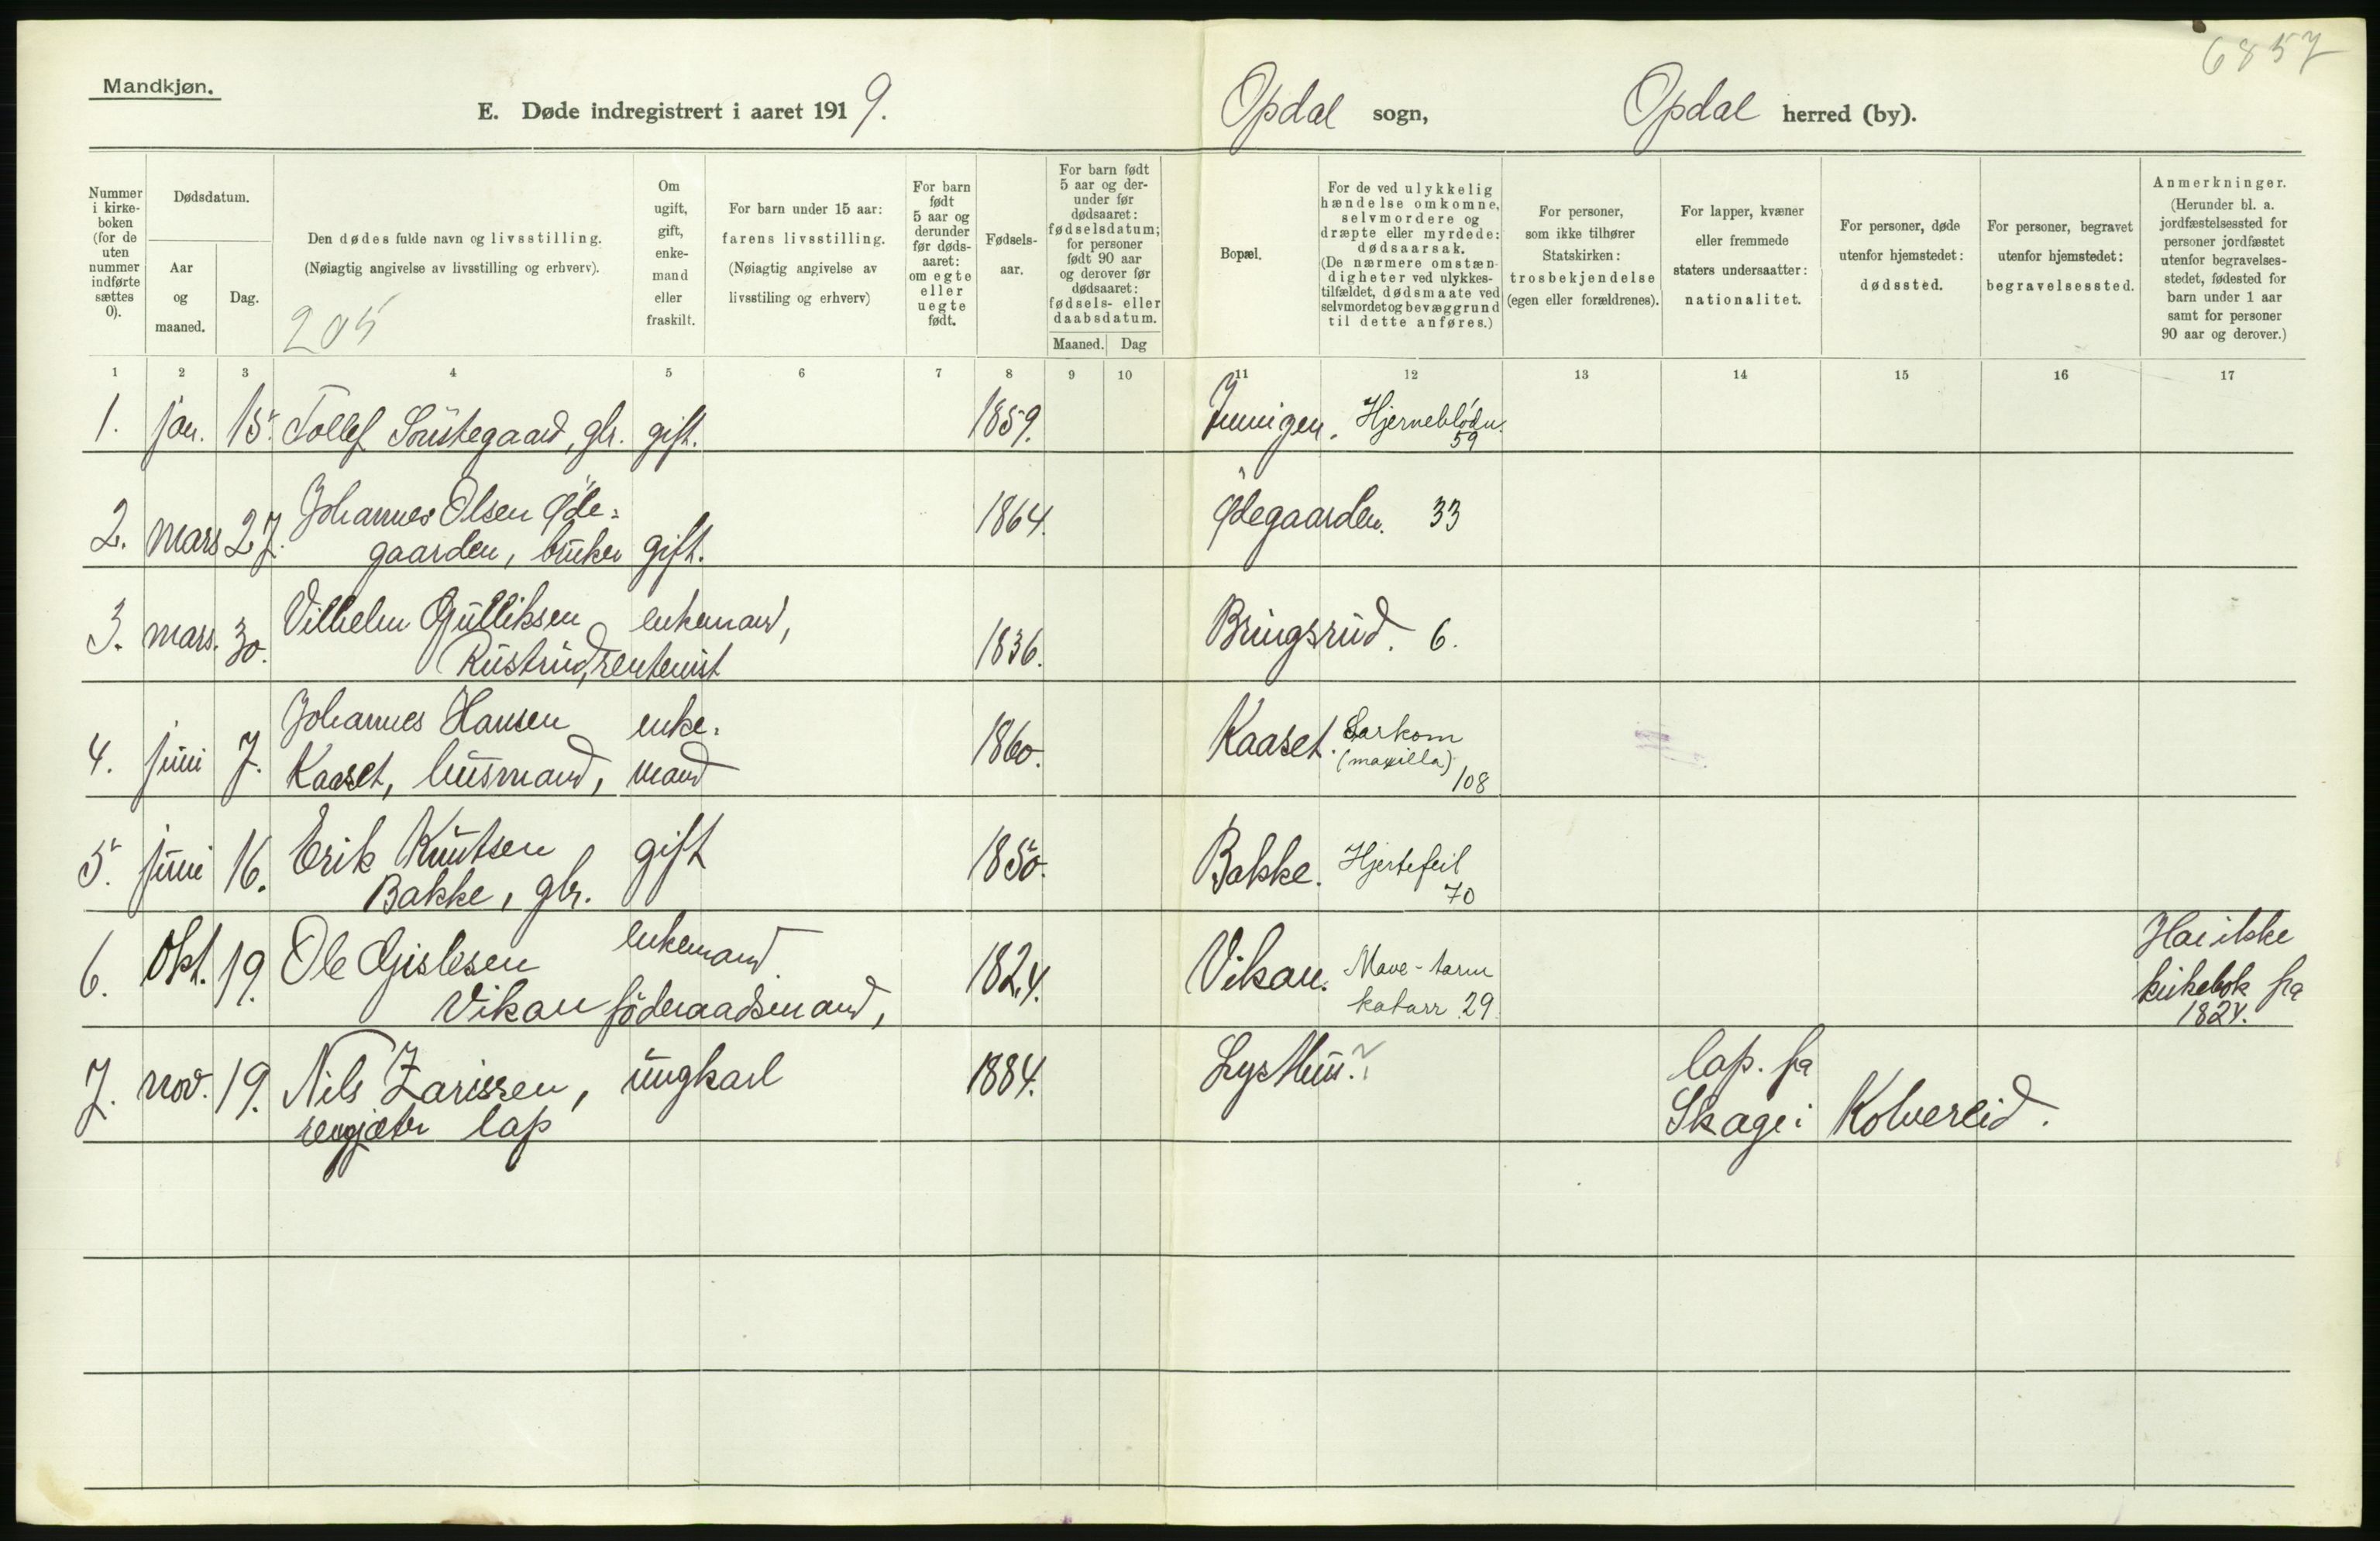 6857
Mandkjøn.
E. Døde indregistrert i aaret 1919.
Opdal sogn, Opdal herred (by).
Nummer i kirkeboken (for de uten nummer indførte sættes 0).
Dødsdatum.
Aar og maaned.
Dag.
Den dødes fulde navn og livsstilling.
(Nøiagtig angivelse av livsstilling og erhverv).
205
Om ugift, gift, enkemand eller fraskilt.
For barn under 15 aar: farens livsstilling.
(Nøiagtig angivelse av livsstiling og erhverv)
For barn født 5 aar og derunder før dødsaaret: om egte eller uegte født.
Fødselsaar.
For barn født 5 aar og derunder før dødsaaret: fødselsdatum; for personer født 90 aar og derover før dødsaaret: fødsels- eller daabsdatum.
Maaned. Dag
Bopæl.
For de ved ulykkelig hændelse omkomne, selvmordere og dræpte eller myrdede: dødsaarsak.
(De nærmere omstændigheter ved ulykkestilfældet, dødsmaate ved selvmordet og bevæggrund til dette anføres.)
For personer, som ikke tilhører Statskirken: trosbekjendelse (egen eller forældrenes).
For lapper, kvæner eller fremmede staters undersaatter: nationalitet.
For personer, døde utenfor hjemstedet: dødssted.
For personer, begravet utenfor hjemstedet: begravelsessted.
Anmerkninger.
(Herunder bl. a. jordfæstelsessted for personer jordfæstet utenfor begravelsesstedet, fødested for barn under 1 aar samt for personer 90 aar og derover.)
1 2 3 4 5 6 7 8 9 10 11 12 13 14 15 16 17
1. jan. 15. Tollef gbr. gift. 1859. Hjerneblødn. 59
2. mars 27. Johannes Olsen Øde=
gaarden, bruker gift. 1864. Ødegaarden. 33
3. mars. 30. Vilhelm Gulliksen enkemand,
Rustrud, rentenist 1836. Bringsrud. 6.
4. juni 7. Johannes Hansen enke=
Kaaset, husmand, mand 1860. Kaaset. Sarkom
(maxilla) 108
5. juni 16. Erik Knutsen gift
Bakke, gbr. 1850. Bakke. Hjertefeil
70
6. Okt. 19. Ole Gislesen enkemand
Vikan föderaadsmand, 1824. Vikan. Mave-tarm
katarr 29. Har ikke
kirkebok fra
1824.
7. nov. 19. Nils Zarissen, ungkarl 1884. lap. fra
rengjæter lap Skage i Kolvereid.